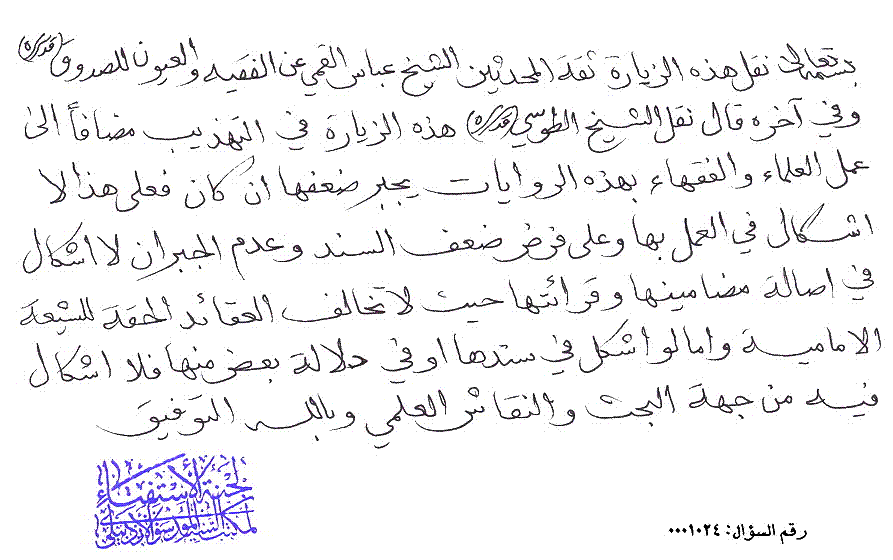 بسمه تعالى نقل هذه الزيارة ثقة المحدثين الشيخ عباس القمي عن الفقيه والعيون للصدوق (قدس سره)
وفي آخره قال نقل الشيخ الطوسي (قدس سره) هذه الزيارة في التهذيب مضافاً الى
عمل العلماء والفقهاء بهذه الروايات يجبر ضعفها ان كان فعلى هذا لا
اشكال في العمل بها وعلى فرض ضعف السند وعدم الجبران لا اشكال
في اصالة مضامينها وقرائتها حيث لا تخالف العقائد الحقة للشيعة
الامامية واما لو اشكل في سندها او في دلالة بعض منها فلا اشكال
فيه من جهة البحث والنقاش العلمي وبالله التوفيق
لجنة الاستفتاء
لمكتب السيد الموسوي الاردبيلي
رقم السؤال: ٠٠٠١٠٢٤